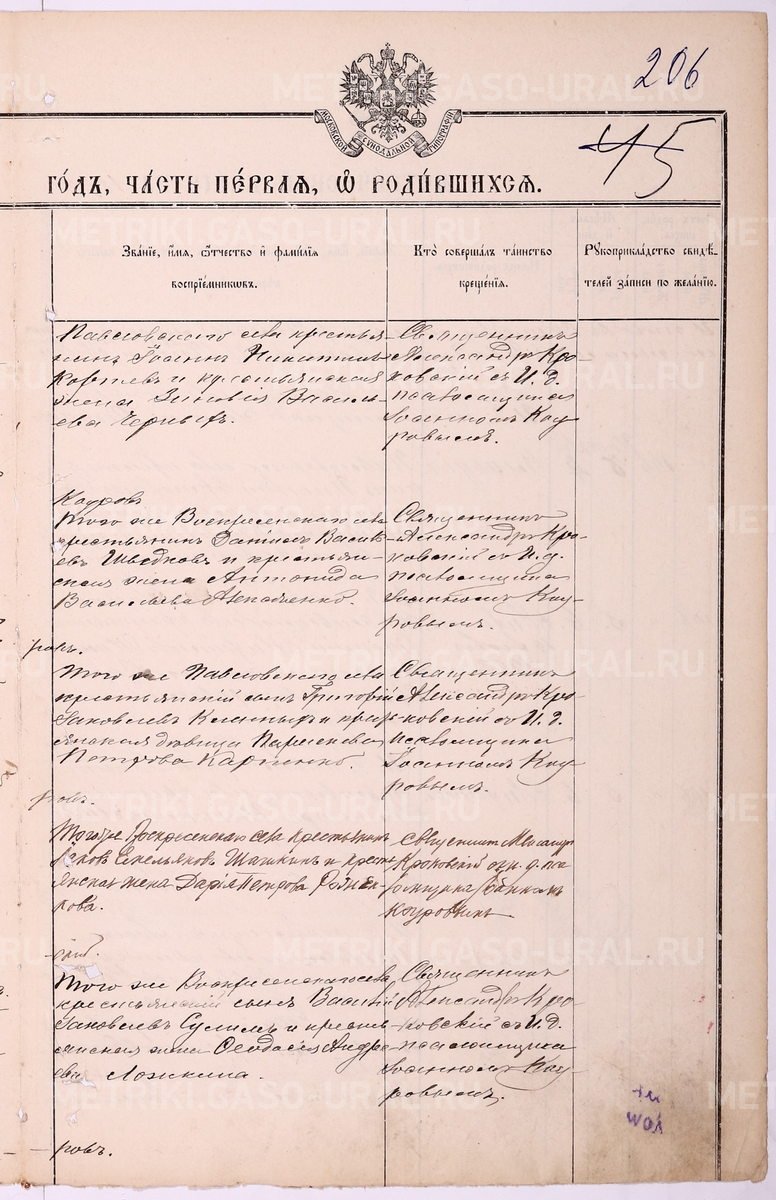 206
45
МОСКОВСКОЙ СѴНОДАЛЬНОЙ ТИПОГРАФІИ
ГО́ДЪ, ЧА́СТЬ ПЕ́РВАЯ, Ѡ҆ РОДИ́ВШИХСЯ.
Зва́нїе, и҆́мя, ѻ҆́тчество и҆ фами́лїя
воспрїе́мниковъ.
Кто̀ соверша́лъ та́инство
креще́нїя.
Рꙋкоприкла́дство свидѣ́-
телей за́писи по жела́нїю.
Павловскаго села крестья
нинъ Іоаннъ Никитинъ
и крестьянская
жена Зиновия Василь
ева Черныхъ.
Священникъ
Александръ Кро
ковскій съ И. д.
псаломщика
Іоанномъ Кау
ровымъ.
Кауровъ
Того же Воскресенскаго села
крестьянинъ Даніилъ Василь
евъ Шведковъ и крестьян-
ская жена Антонида
Васильева
Священникъ
Александръ Кро-
ковскій съ И. д.
псаломщика
Іоанномъ Кау-
ровымъ.
ровъ.
Того же Павловскаго села
крестьянскій сынъ Григорій
Яковлевъ и крес
янская дѣвица Параскева
Петрова Карпенко.
Священникъ
Александръ Кро-
ковскій съ И. д.
псаломщика
Іоанномъ Кау
ровымъ.
ровъ.
Тогоже Воскресенскаго села крестьянинъ
Яковъ Емельяновъ Шашкинъ и кресть
янская жена Дарія Петрова
кова.
Священникъ Александръ
Кроковскій съ и. д. пса
ломщика Іоанномъ
Кауровымъ
Того же Воскресенскаго села
крестьянскій сынъ Василій
Яковлевъ Сулимъ и кресть
янская жена Ѳеодосія Андре
ева Ложкина.
Священникъ
Александръ Кро
ковскій съ И. д.
псаломщика
Іоанномъ Кау
ровымъ.
ровъ.
METRIKI.GASO-URAL.RU